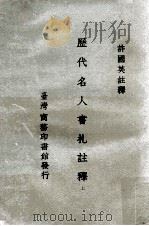 許國英註釋
歷代名人書札註釋 上
臺灣商務印書館發行